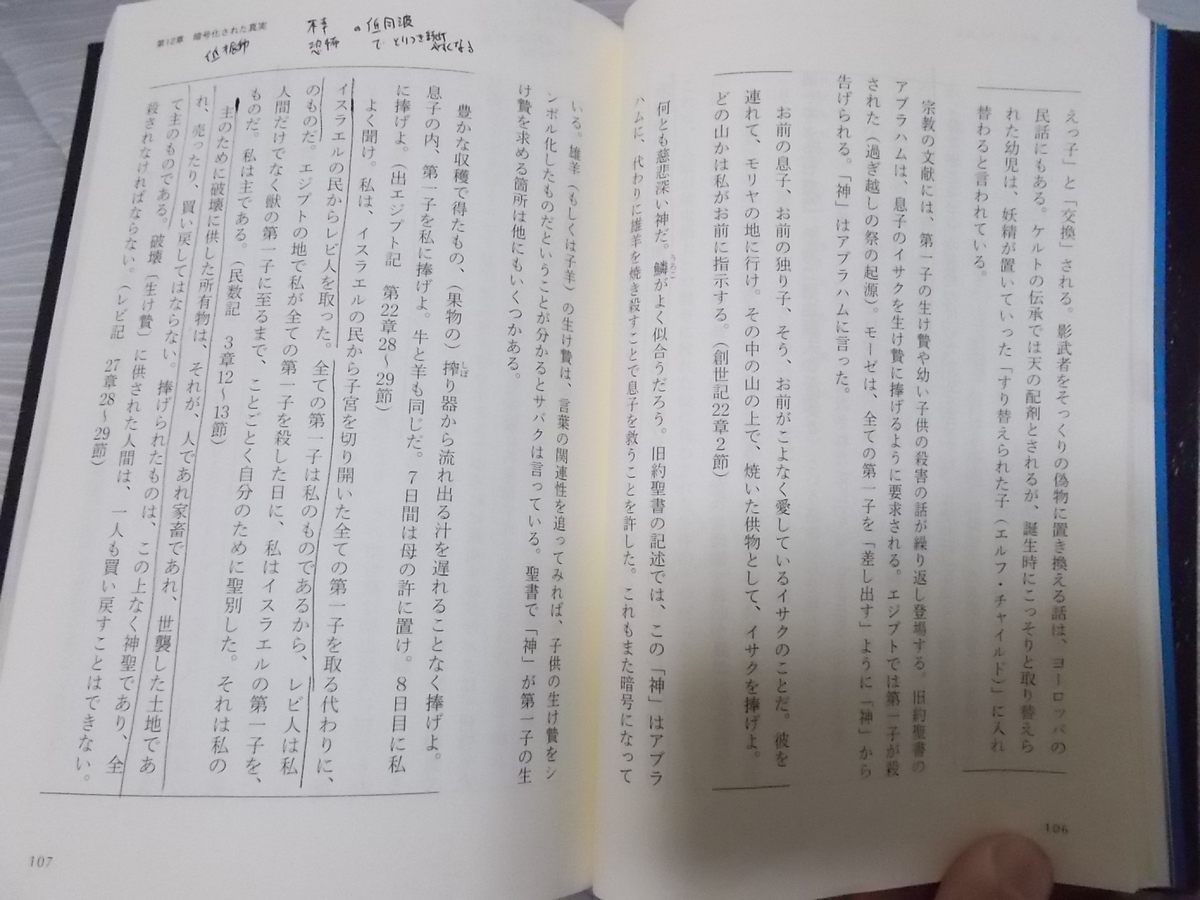 えっ子」と「交換」される。影武者をそっくりの偽物に置き換える話は、ヨーロッパの
民話にもある。ケルトの伝承では天の配剤とされるが、誕生時にこっそりと取り替えら
れた幼児は、妖精が置いていった「すり替えられた子（エルフ・チャイルド）」に入れ
替わると言われている。
宗教の文献には、第一子の生け贄や幼い子供の殺害の話が繰り返し登場する。旧約聖書の
アブラハムは、息子のイサクを生け贄に捧げるように要求される。エジプトでは第一子が殺
された（過ぎ越しの祭の起源）。モーゼは、全ての第一子を「差し出す」ように「神」から
告げられる。「神」はアブラハムに言った。
お前の息子、お前の独り子、そう、お前がこよなく愛しているイサクのことだ。彼を
連れて、モリヤの地に行け。その中の山の上で、焼いた供物として、イサクを捧げよ。
どの山かは私がお前に指示する。（創世記22章2節）
何とも慈悲深い神だ。鱗がよく似合うだろう。旧約聖書の記述では、この「神」はアブラ
うろこ
ハムに、代わりに雄羊を焼き殺すことで息子を救うことを許した。これもまた暗号になって
106
第12章　暗号化された真実
低振動
恐怖
の低周波
で とりつき
なる
いる。雄羊（もしくは子羊）の生け贄は、言葉の関連性を追ってみれば、子供の生け贄をシ
ンボル化したものだということが分かるとサバクは言っている。聖書で「神」が第一子の生
け贄を求める箇所は他にもいくつかある。
豊かな収穫で得たもの、（果物の）搾り器から流れ出る汁を遅れることなく捧げよ。
しぼ
息子の内、第一子を私に捧げよ。牛と羊も同じだ。7日間は母の許に置け。8日目に私
に捧げよ。（出エジプト記　第22章28～29節）
よく聞け。私は、イスラエルの民から子宮を切り開いた全ての第一子を取る代わりに、
イスラエルの民からレビ人を取った。全ての第一子は私のものであるから、レビ人は私
のものだ。エジプトの地で私が全ての第一子を殺した日に、私はイスラエルの第一子を、
人間だけでなく獣の第一子に至るまで、ことごとく自分のために聖別した。それは私の
ものだ。私は主である。（民数記　3章12～13節）
主のために破壊に供した所有物は、それが、人であれ家畜であれ、世襲した土地であ
れ、売ったり、買い戻してはならない。捧げられたものは、この上なく神聖であり、全
て主のものである。破壊（生け贄）に供された人間は、一人も買い戻すことはできない。
殺されなければならない。（レビ記　27章28～29節）
107